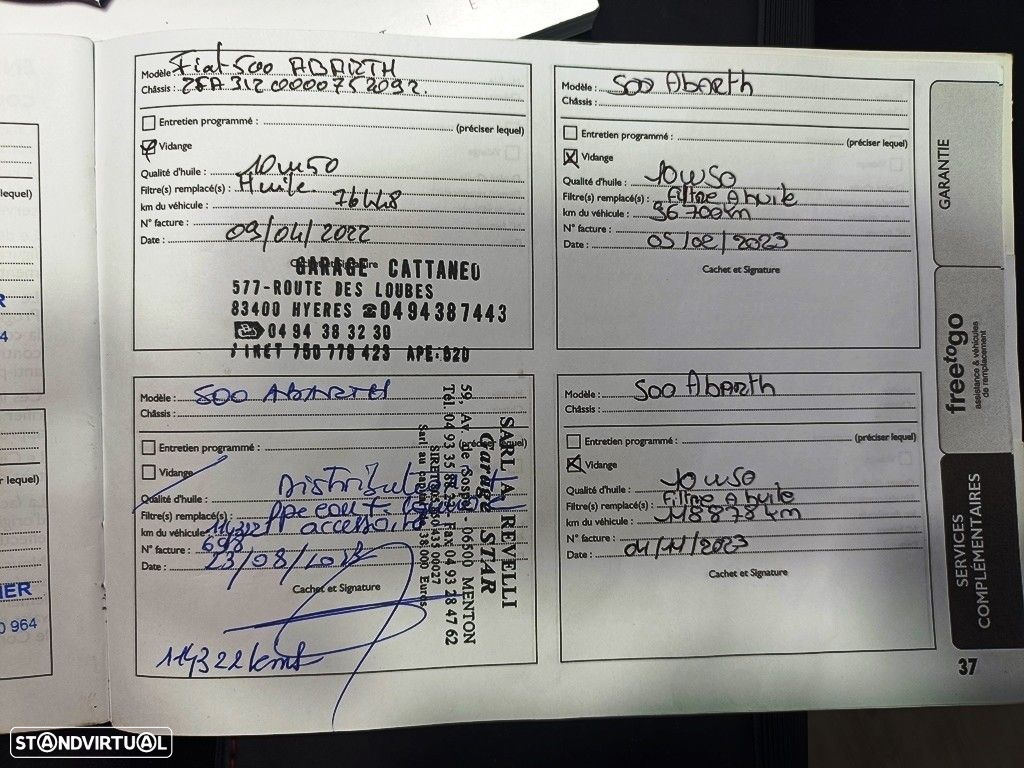 Modèle : Fiat 500 ABARTH
Châssis : ZFA 312 00000752092.
Entretien programmé :
(préciser lequel)
Vidange
Qualité d'huile : 10w50
Filtre(s) remplacé(s) : Huile
km du véhicule : 76448
N° facture :
Date : 09/04/2022
Cachet et Signature
GARAGE CATTANEO
577-ROUTE DES LOUBES
83400 HYERES ☎0494387443
04 94 38 32 30
SIRET 750 779 423 APE:520
Modèle : 500 Abarth
Châssis :
Entretien programmé :
(préciser lequel)
Vidange
Qualité d'huile : 10w50
Filtre(s) remplacé(s) : Filtre A huile
km du véhicule : 96 700 km
N° facture :
Date : 05/02/2023
Cachet et Signature
Modèle : 500 ABARTH
Châssis :
Entretien programmé :
(préciser lequel)
Vidange
Qualité d'huile : Distribution
Filtre(s) remplacé(s) : ppe eau + courroie
km du véhicule : 114322 accessoire
N° facture : 698
Date : 23/08/2023
Cachet et Signature
114322 kms
SARL A. REVELLI
Garage STAR
59, Av. de Sospel - 06500 MENTON
Tél. 04 93 35 Fax 04 93 28 47 62
SIRET
Sarl au capital de 38 000 Euros
Modèle : 500 Abarth
Châssis :
Entretien programmé :
(préciser lequel)
Vidange
Qualité d'huile : 10w50
Filtre(s) remplacé(s) : Filtre A huile
km du véhicule : 118878 km
N° facture :
Date : 04/11/2023
Cachet et Signature
GARANTIE
freetogo
assistance & véhicules
de remplacement
SERVICES
COMPLÉMENTAIRES
37
lequel)
r lequel)
0 964
STANDVIRTUAL